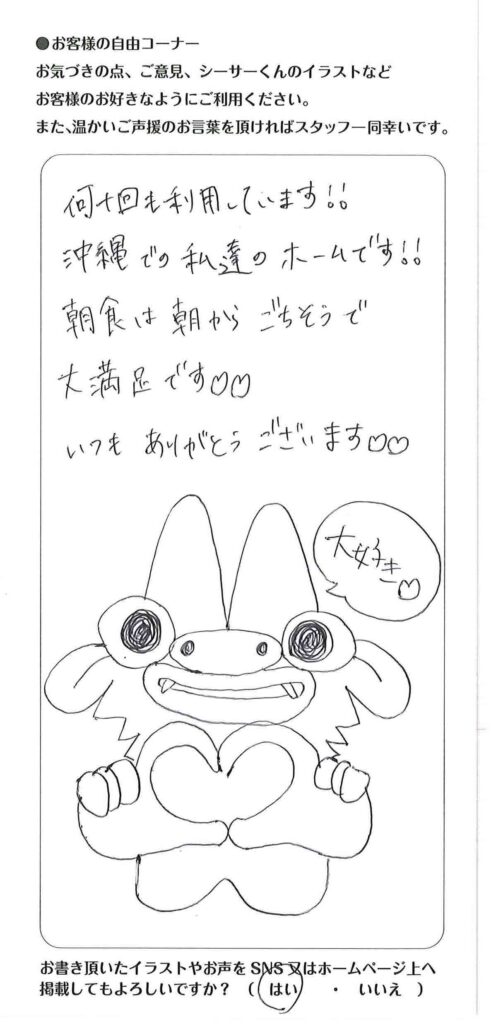 ●お客様の自由コーナー
お気づきの点、ご意見、シーサーくんのイラストなど
お客様のお好きなようにご利用ください。
また、温かいご声援のお言葉を頂ければスタッフ一同幸いです。
何十回も利用しています!!
沖縄での私達のホームです!!
朝食は朝からごちそうで
大満足です♡♡
いつもありがとうございます♡♡
大好き♡
お書き頂いたイラストやお声をSNS又はホームページ上へ
掲載してもよろしいですか？（ はい ・ いいえ ）